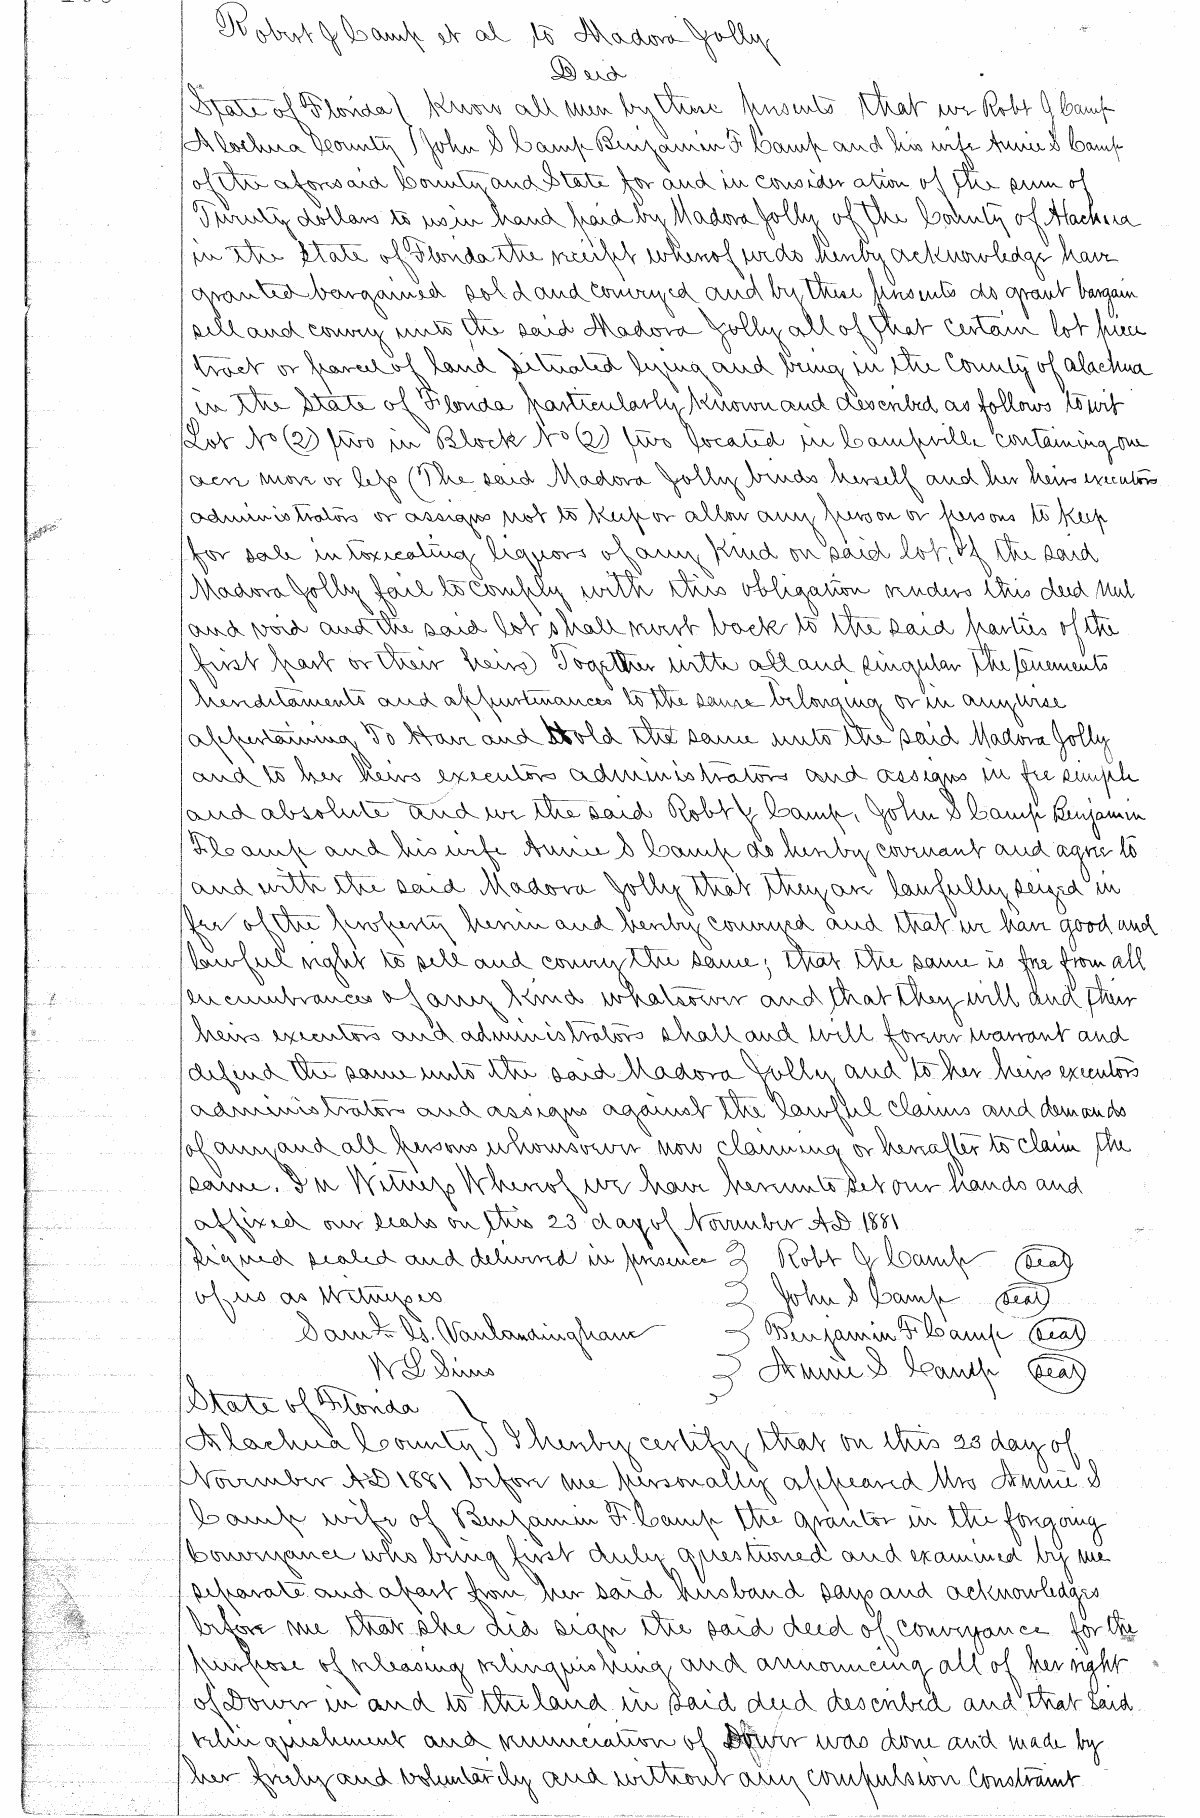 Robert J Camp et al to Madora Jolly
Deed
State of Florida ( Know all men by these presents that we Robt J Camp
Alachua County ) John S Camp Benjamin F Camp and his wife Annie S Camp
of the aforesaid County and State for and in consideration of the sum of
Twenty dollars to us in hand paid by Madora Jolly of the County of Alachua
in the State of Florida the receipt whereof we do hereby acknowledge have
granted bargained sold and conveyed and by these presents do grant bargain
sell and convey unto the said Madora Jolly all of that certain lot piece
tract or parcel of land situated lying and being in the County of Alachua
in the State of Florida particularly known and described as follows to wit
Lot No (2) two in Block No (2) two located in Campville containing one
acre more or less (The said Madora Jolly binds herself and her heirs executors
administrators or assigns not to keep or allow any person or persons to keep
for sale intoxicating liquors of any kind on said lot, If the said
Madora Jolly fail to comply with this obligation renders this deed nul
and void and the said lot shall revert back to the said parties of the
first part or their heirs) Together with all and singular the tenements
hereditaments and appurtenances to the same belonging or in anywise
appertaining To Have and Hold the same unto the said Madora Jolly
and to her heirs executors administrators and assigns in fee simple
and absolute and we the said Robt J Camp, John S Camp Benjamin
F Camp and his wife Annie S Camp do hereby covenant and agree to
and with the said Madora Jolly that they are lawfully seized in
fee of the property herein and hereby conveyed and that we have good and
lawful right to sell and convey the same; that the same is free from all
encumbrances of any kind whatsoever and that they will and their
heirs executors and administrators shall and will forever warrant and
defend the same unto the said Madora Jolly and to her heirs executors
administrators and assigns against the lawful claims and demands
of any and all persons whomsoever now claiming or hereafter to claim the
same. In Witness Whereof we have hereunto set our hands and
affixed our seals on this 23 day of November AD 1881
Signed sealed and delivered in presence } Robt J Camp (seal)
of us as Witnesses } John S Camp (seal)
Saml G. Vanlandingham } Benjamin F Camp (seal)
W L Sims } Annie S Camp (seal)
State of Florida )
Alachua County ) I hereby certify that on this 23 day of
November AD 1881 before me personally appeared Mrs Annie S
Camp wife of Benjamin F. Camp the grantor in the foregoing
Conveyance who being first duly questioned and examined by me
separate and apart from her said husband says and acknowledges
before me that she did sign the said deed of conveyance for the
purpose of releasing relinquishing and announcing all of her right
of Dower in and to the land in said deed described and that said
relinquishment and renunciation of Dower was done and made by
her freely and voluntarily and without any compulsion constraint